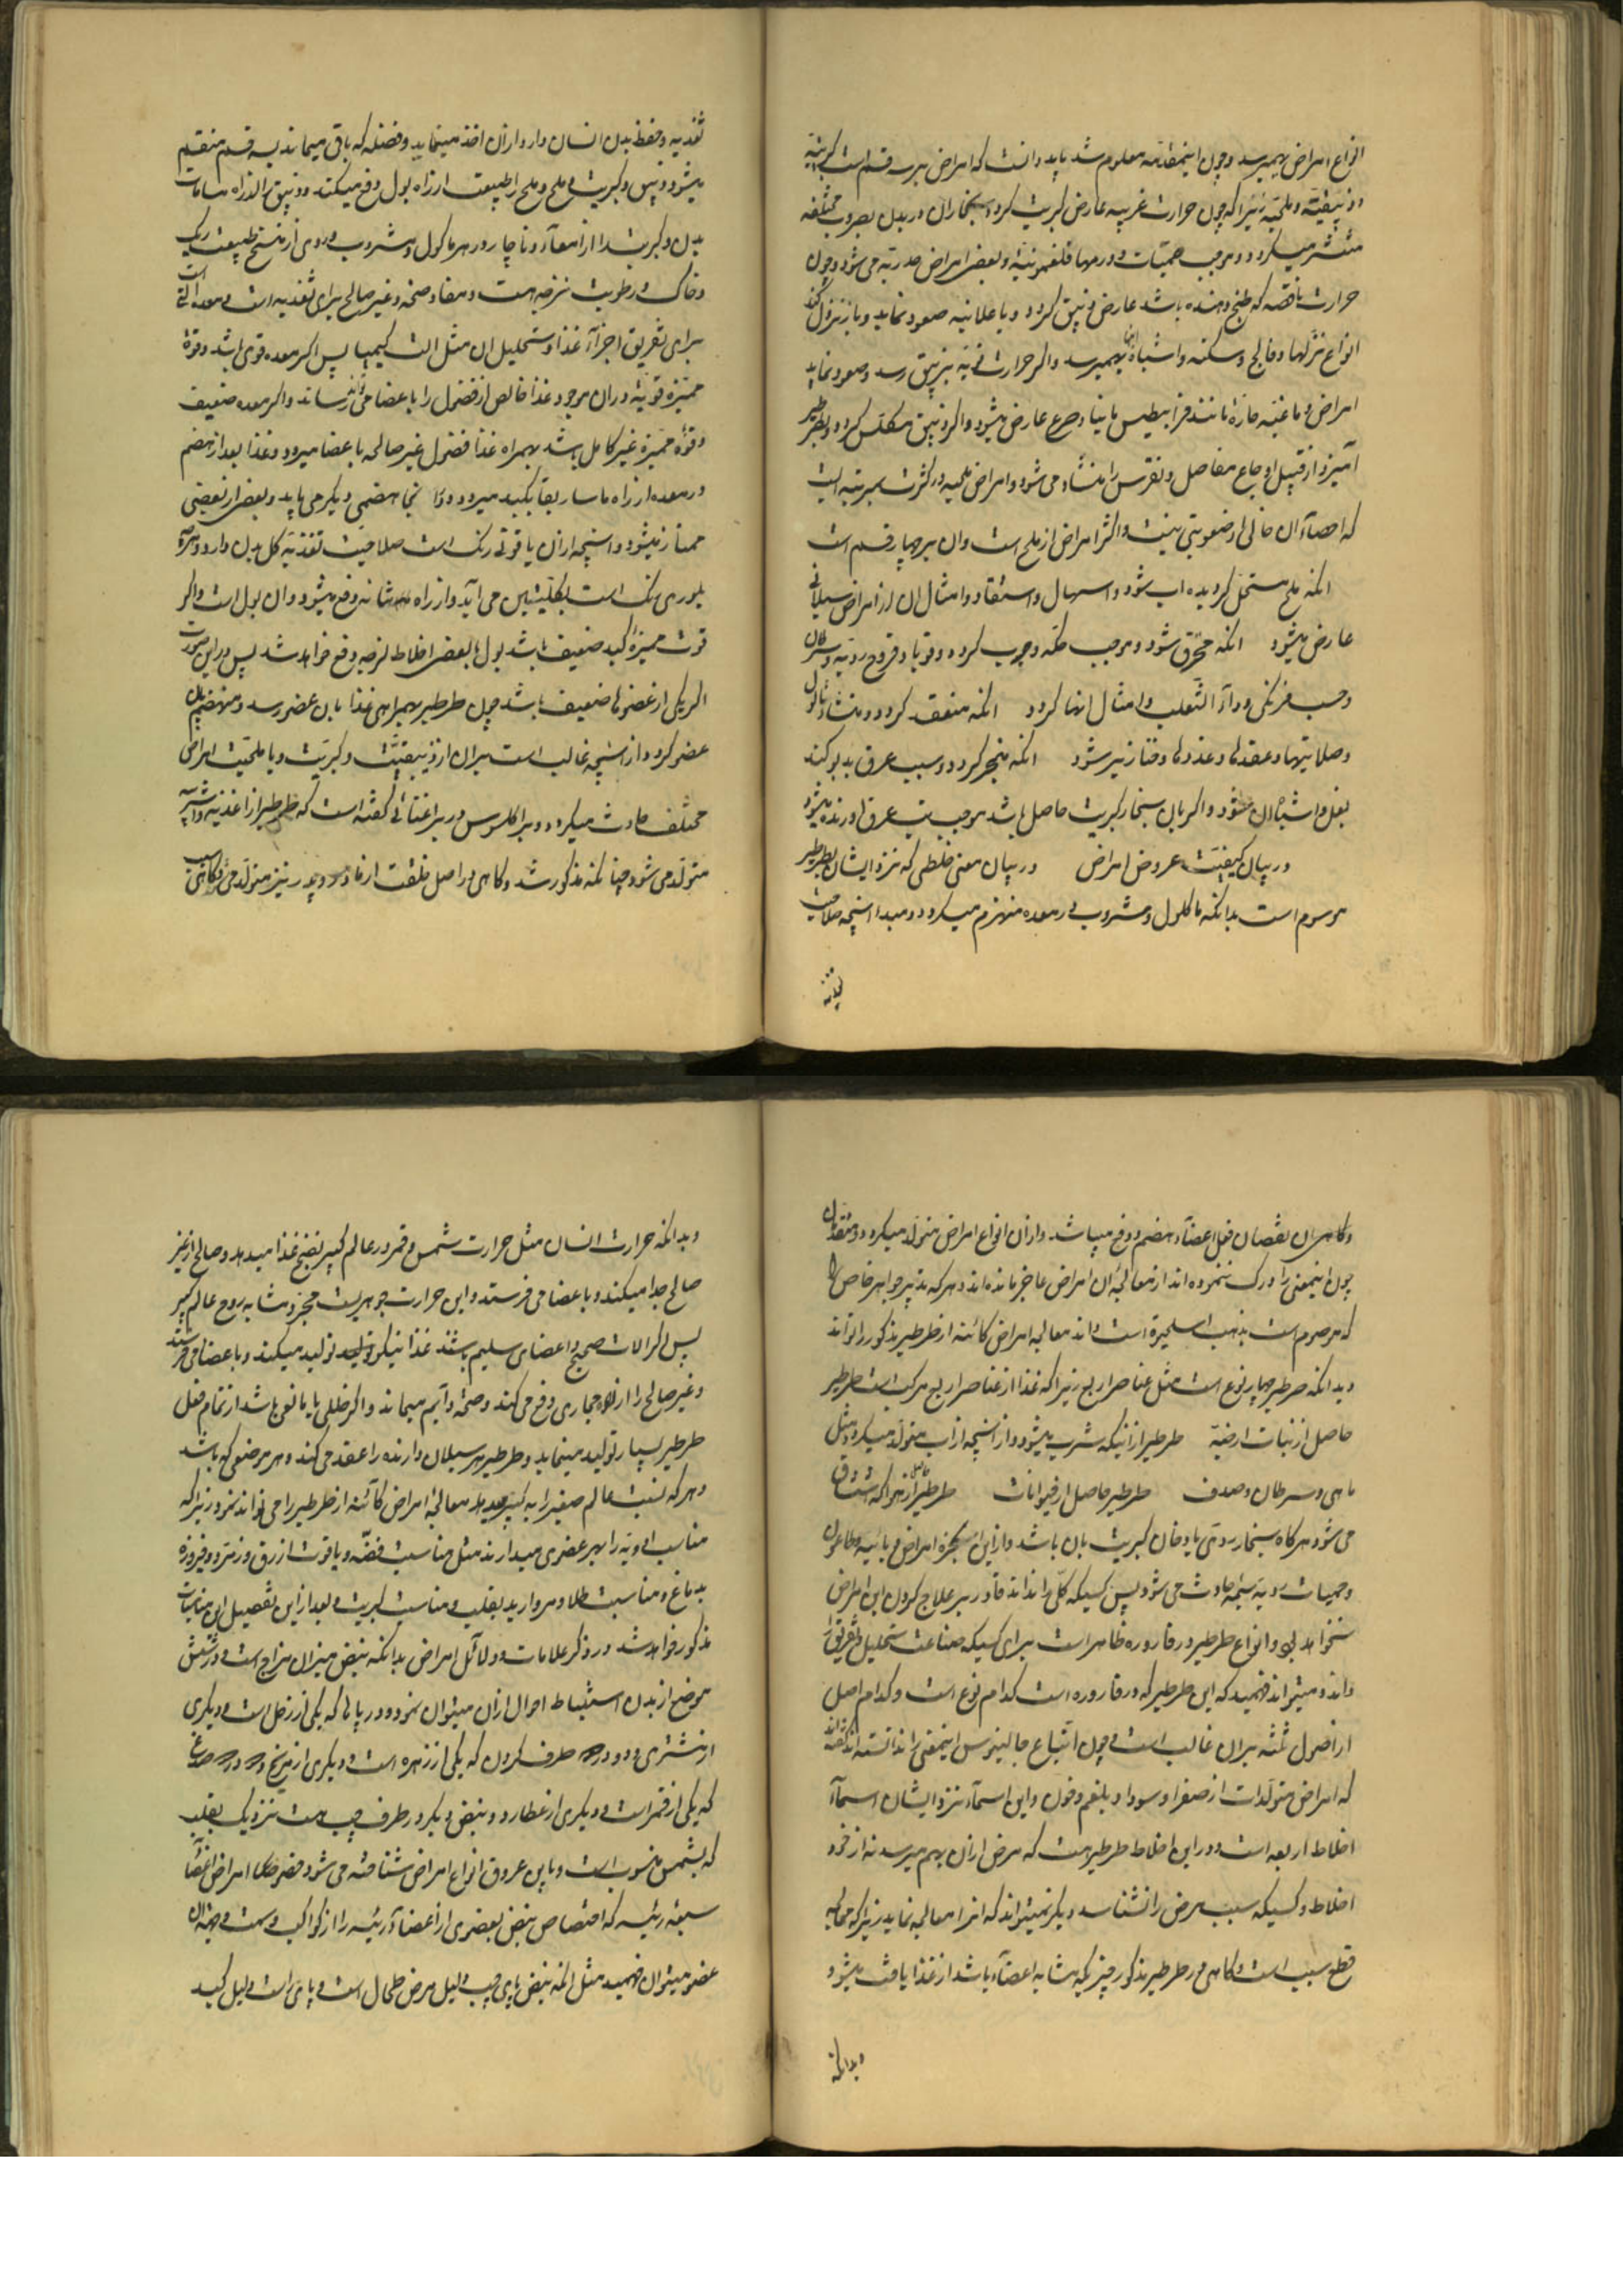 انواع امراض بهمیرسد و چون اینمقدمه معلوم شد باید دانست که امراض بر سه قسم است کبریتیه
و زیبقیه و ملحیه زیرا که چون حرارت غریبه عارض کبریت گردد بخار آن در بدن بصروب مختلفه
منتشر میگردد و موجب حمیات و ورمها فلغمونیه و بعضی امراض صدریه می شود و چون
حرارت ناقصه که طبخ دهنده باشد عارض زیبق گردد و یا علانیه صعود نماید و یا نزول کند
انواع نزلها و فالج و سکته و اشباه آنها بهمیرسد و اگر حرارت بزیبق رسد و صعود نماید
امراض دماغیه حاره مانند فرانیطیس مانیا و صرع عارض میشود و اگر زیبق متکلس گردد و بطرطیر
آمیزد از قبیل اوجاع مفاصل و نقرس را منشاء می شود و امراض ملحیه در کثرت بمرتبه ایست
که احصاء آن خالی از صعوبتی نیست و اکثر امراض از ملح است و آن بر چهار قسم است
آنکه ملح منحل گردیده آب شود و اسهال و استسقا و امثال آن از امراض سیلانی
عارض میشود آنکه محرق شود و موجب حکه و جرب گردد و قوبا و قروح ردیه و سرطان
و حب فرنکی و داء الثعلب و امثال آنها گردد آنکه منعقد گردد و منشاء ثالول
و صلابتها و عقدها و غددها و خنازیر شود آنکه متبخر گردد و سبب عرق بدبو کند
بغل و اشباه آن میشود و اگر با آن بخار کبریت حاصل باشد موجب تب عرق آورنده میشود
در بیان کیفیت عروض امراض در بیان معنی خلطی که نزد ایشان بطرطیر
موسوم است بدانکه ماکول و مشروب در معده منهزم میگردد و مبدا آنچه صلاحیت
تغذیه و حفظ بدن انسان دارد از آن اخذ مینماید و فضله که باقی میماند بسه قسم منقسم
میشود زیبق و کبریت و ملح و ملح را طبیعت از راه بول دفع میکند و زیبق را از راه مسامات
بدن و کبریت را از امعاء و ناچار در هر ماکول و مشروب دردی از سنخ طبیعت ریک
و خاک و رطوبت لزجه هست و مضاد صحه و غیر صالح برای تغذیه است و معده آلتی است
برای تفریق اجزاء غذا و تحلیل آن مثل آلت کیمیا پس اگر معده قوی باشد و قوة
ممیزه قویه در آن موجود غذا خالص از فضول را باعضا میتواند رساند و اگر معده ضعیف
و قوة ممیزه غیر کامل باشد بهمراه غذا فضول غیر صالحه باعضا میرود و غذا بعد از هضم
در معده از راه ماساریقا بکبد میرود و در آنجا هضمی دیگر می یابد و بعضی از بعضی
ممتاز میشود و آنچه از آن یاقوتی رنک است صلاحیت تغذیه کل بدن دارد و آنچه
بلوری رنک است بکلیتین می آید و از راه مثانه دفع میشود و آن بول است و اگر
قوت ممیزه کبد ضعیف باشد بول با بعضی اخلاط لزجه دفع خواهد شد پس در این صورت
اگر یکی از عضوها ضعیف باشد چون طرطیر بهمراهی غذا بآن عضو رسد
عضو گردد و از آنچه غالب است بر آن از زیبقیت و کبریت و یا ملحیت امراض
مختلف حادث میگردد و براکلسوس در براغنائی گفته است که طرطیر از اغذیه و اشربه
متولد می شود چنانکه مذکور شد و گاهی در اصل خلقت از مادر و پدر نیز متولد می شود
و گاهی از نقصان فعل اعضاء هضم و دفع میباشد و از آن انواع امراض متولد میگردد و متقدمان
چون اینمعنی را درک ننموده اند از معالجه آن امراض عاجز مانده اند و هر که تدبیر جواهر خاص را
که مرسوم است بداند معالجه امراض کائنه از طرطیر مذکور را تواند
و بدانکه طرطیر چهار نوع است مثل عناصر اربع زیرا که غذا از عناصر اربع مرکب است طرطیر
حاصل از نبات ارضیه طرطیر از آنکه شرب میشود و از آنچه از آب متولد میگردد مثل
ماهی و سرطان و صدف طرطیر حاصل از حیوانات طرطیر حاصل از هوا که استنشاق
می شود هر گاه بخار ردی یا دخان کبریت با آن باشد و از این ابخره امراض وبائیه و طاعون
و حمیات ردیه حادث می شود پس کسیکه کلی را نداند قادر بر علاج کردن این امراض
نخواهد بود و انواع طرطیر در قاروره ظاهر است برای کسیکه صناعت تحلیل و تفریق را
داند و میتواند فهمید که این طرطیر که در قاروره است کدام نوع است و کدام اصل
از اصول ثلثه بر آن غالب است و چون اتباع جالینوس اینمعنی را ندانسته اند گفته اند
که امراض متولدات از صفرا و سودا و بلغم و خون و این اسماء نزد ایشان اسماء
اخلاط اربعه است و در این اخلاط طرطیر هست که مرض از آن بهم میرسد نه از خود
اخلاط و کسیکه سبب مرض را نشناسد دیگر نمیتواند که آنرا معالجه نماید زیرا که معالجه
قطع سبب است و گاهی در طرطیر مذکور چیزیکه مشابه اعضاء باشد از غذا یافت میشود
و بدانکه
و بدانکه حرارت انسان مثل حرارت شمس و قمر در عالم کبیر نضج غذا میدهد و صالح از غیر
صالح جدا میکند و باعضا می فرستد و این حرارت جوهریست مجرد مشابه روح عالم کبیر
پس اگر آلات صحیح و اعضای سلیم باشند غذا نیکو تولید میکند و باعضا می فرستد
و غیر صالح را از راه مجاری دفع می کند و صحه دایم میماند و اگر خللی یا مانعی باشد از تمام فعل
طرطیر بسیار تولید مینماید و طرطیر هر سیلان دارنده را عقد می کند و هر موضعی که باشد
و هر که نسبت عالم صغیر را به کبیر معالجه امراض کائنه از طرطیر را می تواند نمود زیرا که
مناسب ادویه را بهر عضوی میدارند مثل مناسبت فضه و یاقوت ازرق و زمرد و فیروزه
بدماغ و مناسبت طلا و مروارید بقلب و مناسبت کبریت و بعد از این تفصیل این مناسبات
مذکور خواهد شد در ذکر علامات و دلائل امراض بدانکه نبض میزان مزاج است و در شش
موضع از بدن استنباط احوال از آن میتوان نمود دو در پائی که یکی از زحل است و دیگری
از مشتری و دو در طرف گردن که یکی از زهره است و دیگری از مریخ و دو در صدغ
که یکی از قمر است و دیگری از عطارد و نبض دیگر در طرف چپ هست نزدیک بقلب
که بشمس منسوب است و باین عروق انواع امراض شناخته می شود خصوصا امراض اعضاء
سبعه رئیسه که اختصاص نبض بعضوی از اعضاء رئیسه را از کواکب
عضو میتوان فهمید مثل آنکه نبض پای چپ دلیل مرض طحال است و پای راست دلیل کبد